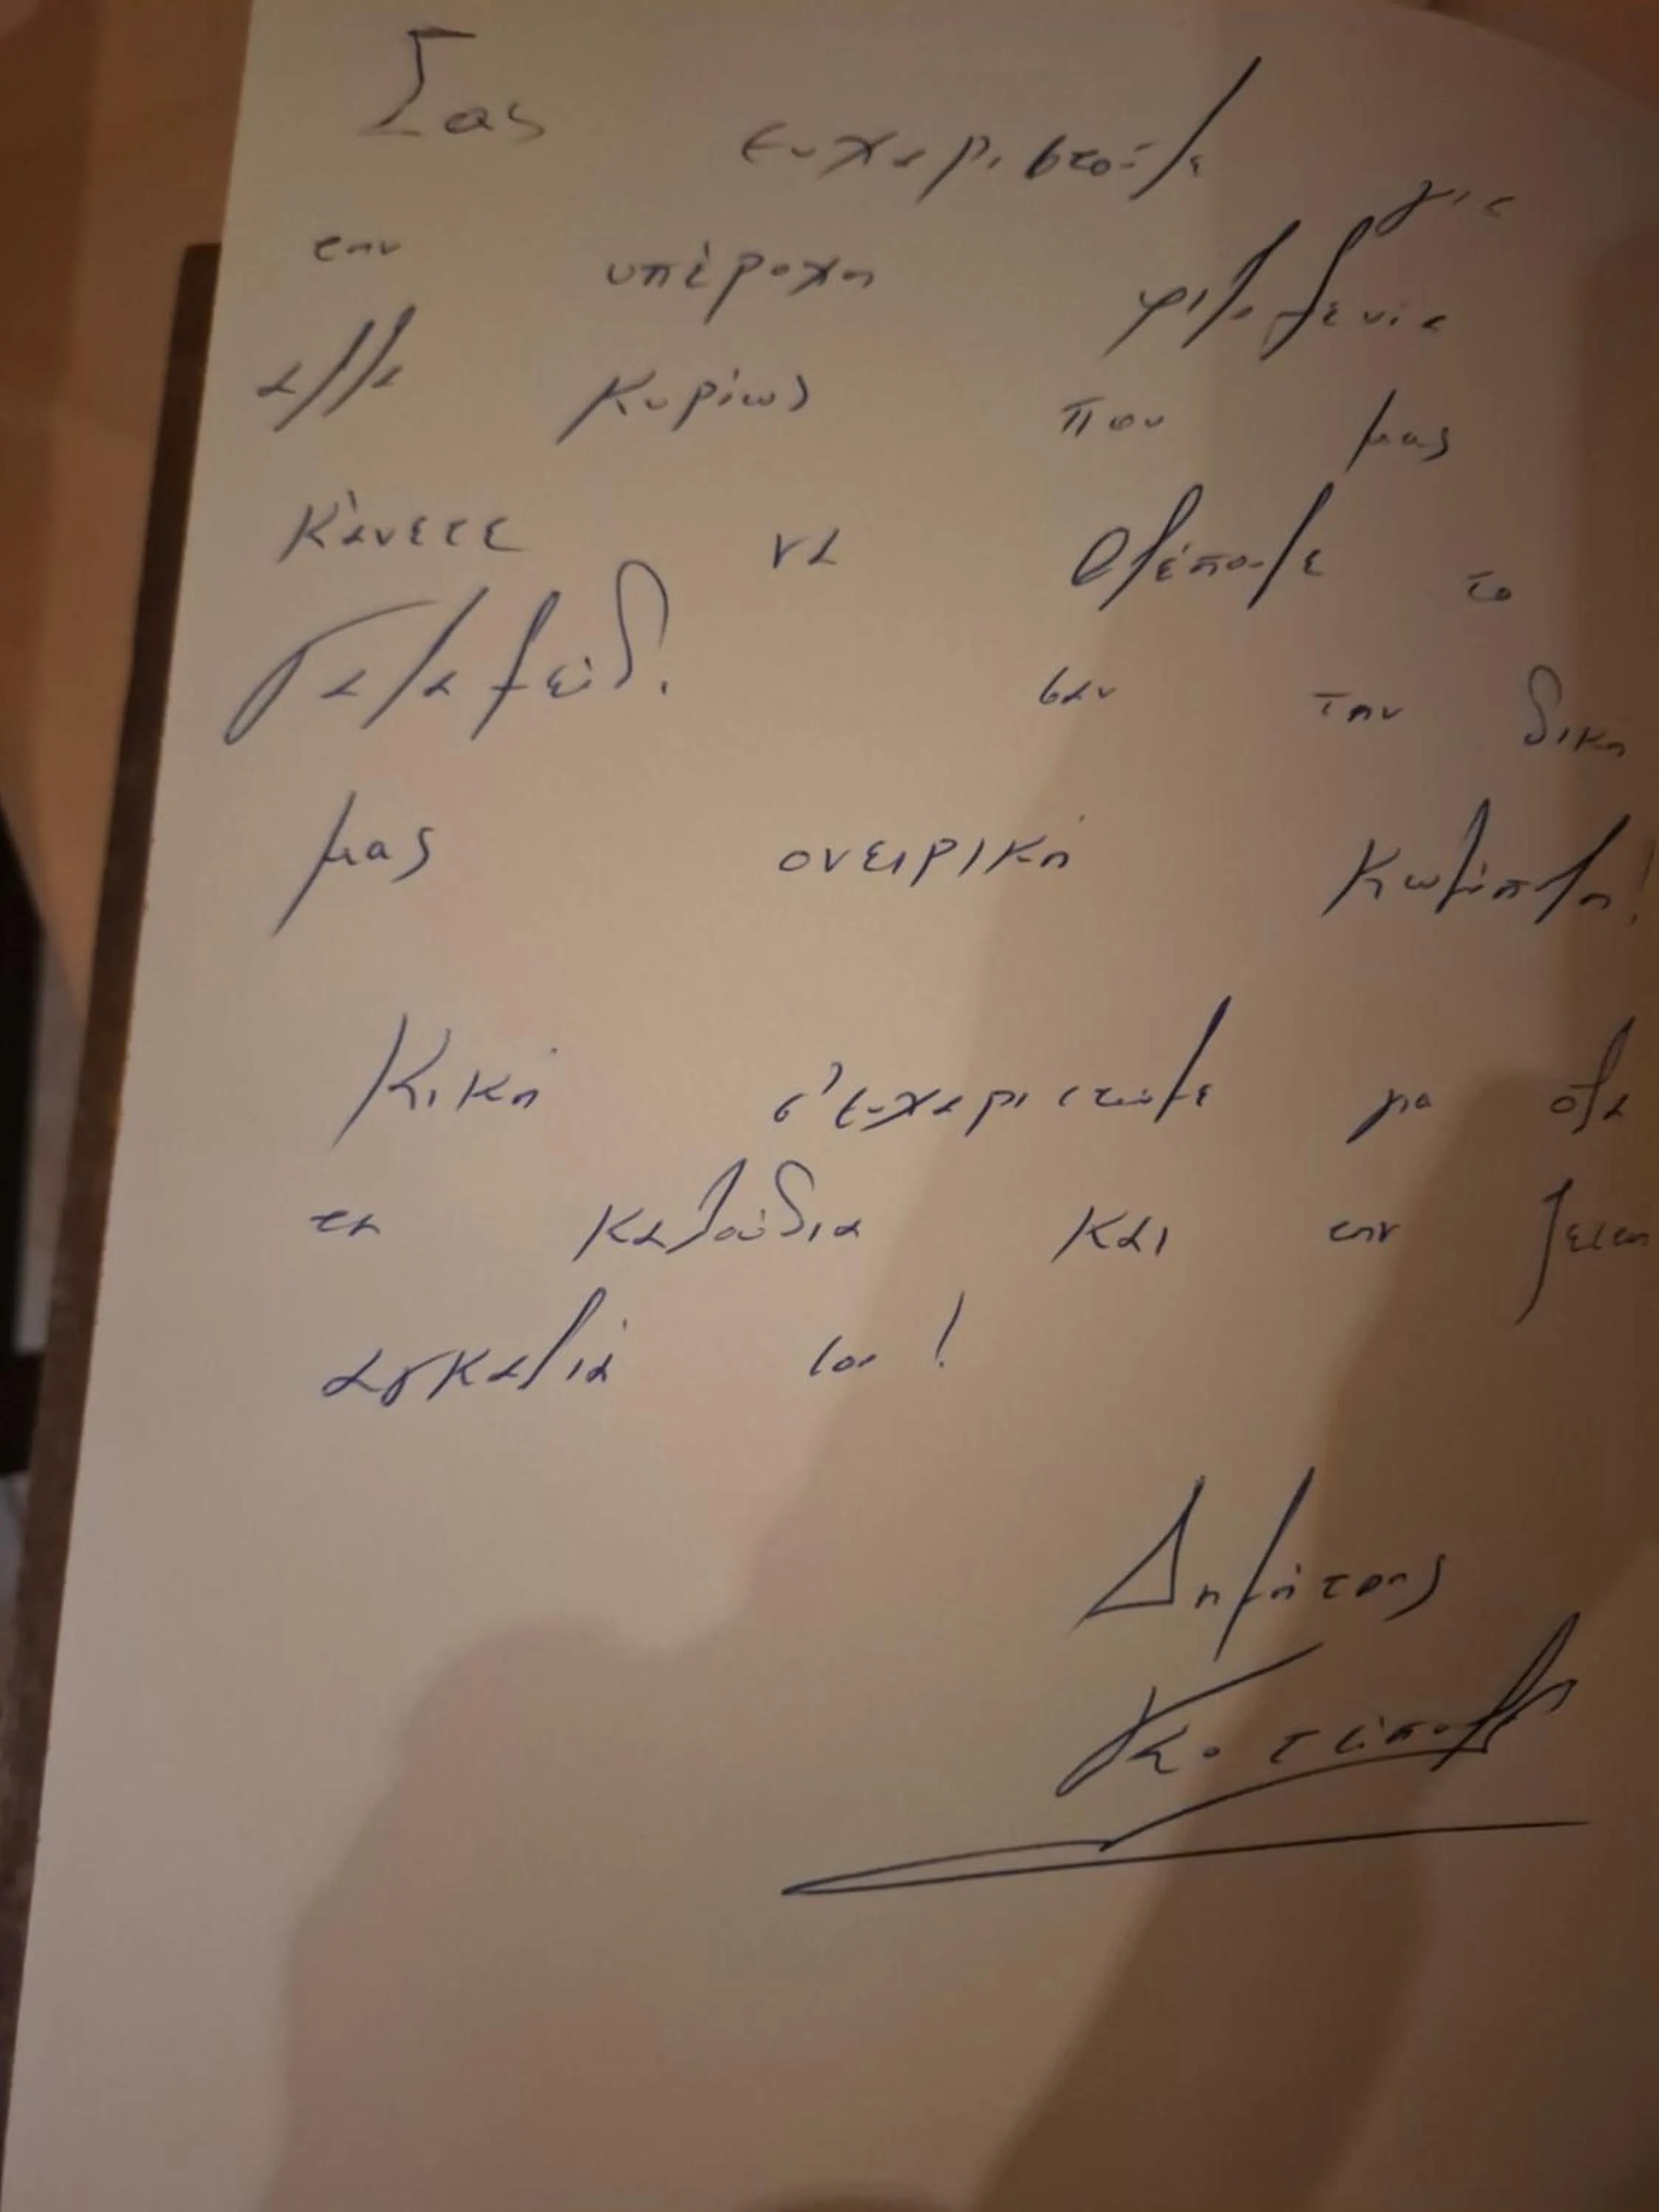 Σας ευχαριστούμε για
την υπέροχη φιλοξενία
αλλά κυρίως που μας
κάνετε να βλέπουμε το
Γαλαξείδι σαν την δική
μας ονειρική κωμόπολη!
Κική σ'ευχαριστούμε για όλα
τα καλούδια και την ζεστή
αγκαλιά σου!
Δημήτρης